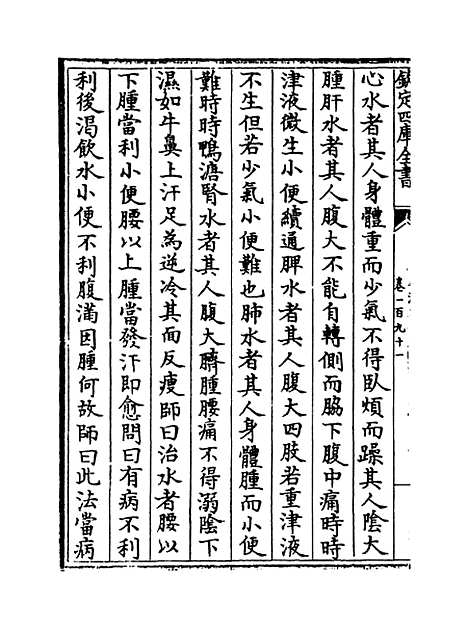 欽定四庫全書
卷一百九十一
心水者其人身體重而少氣不得臥煩而躁其人陰大
腫肝水者其人腹大不能自轉側而脇下腹中痛時時
津液微生小便續通脾水者其人腹大四肢若重津液
不生但若少氣小便難也肺水者其人身體腫而小便
難時時鴨溏腎水者其人腹大臍腫腰痛不得溺陰下
濕如牛鼻上汗足為逆冷其面反瘦師曰治水者腰以
下腫當利小便腰以上腫當發汗即愈問曰有病不利
利後渴飲水小便不利腹滿因腫何故師曰此法當病